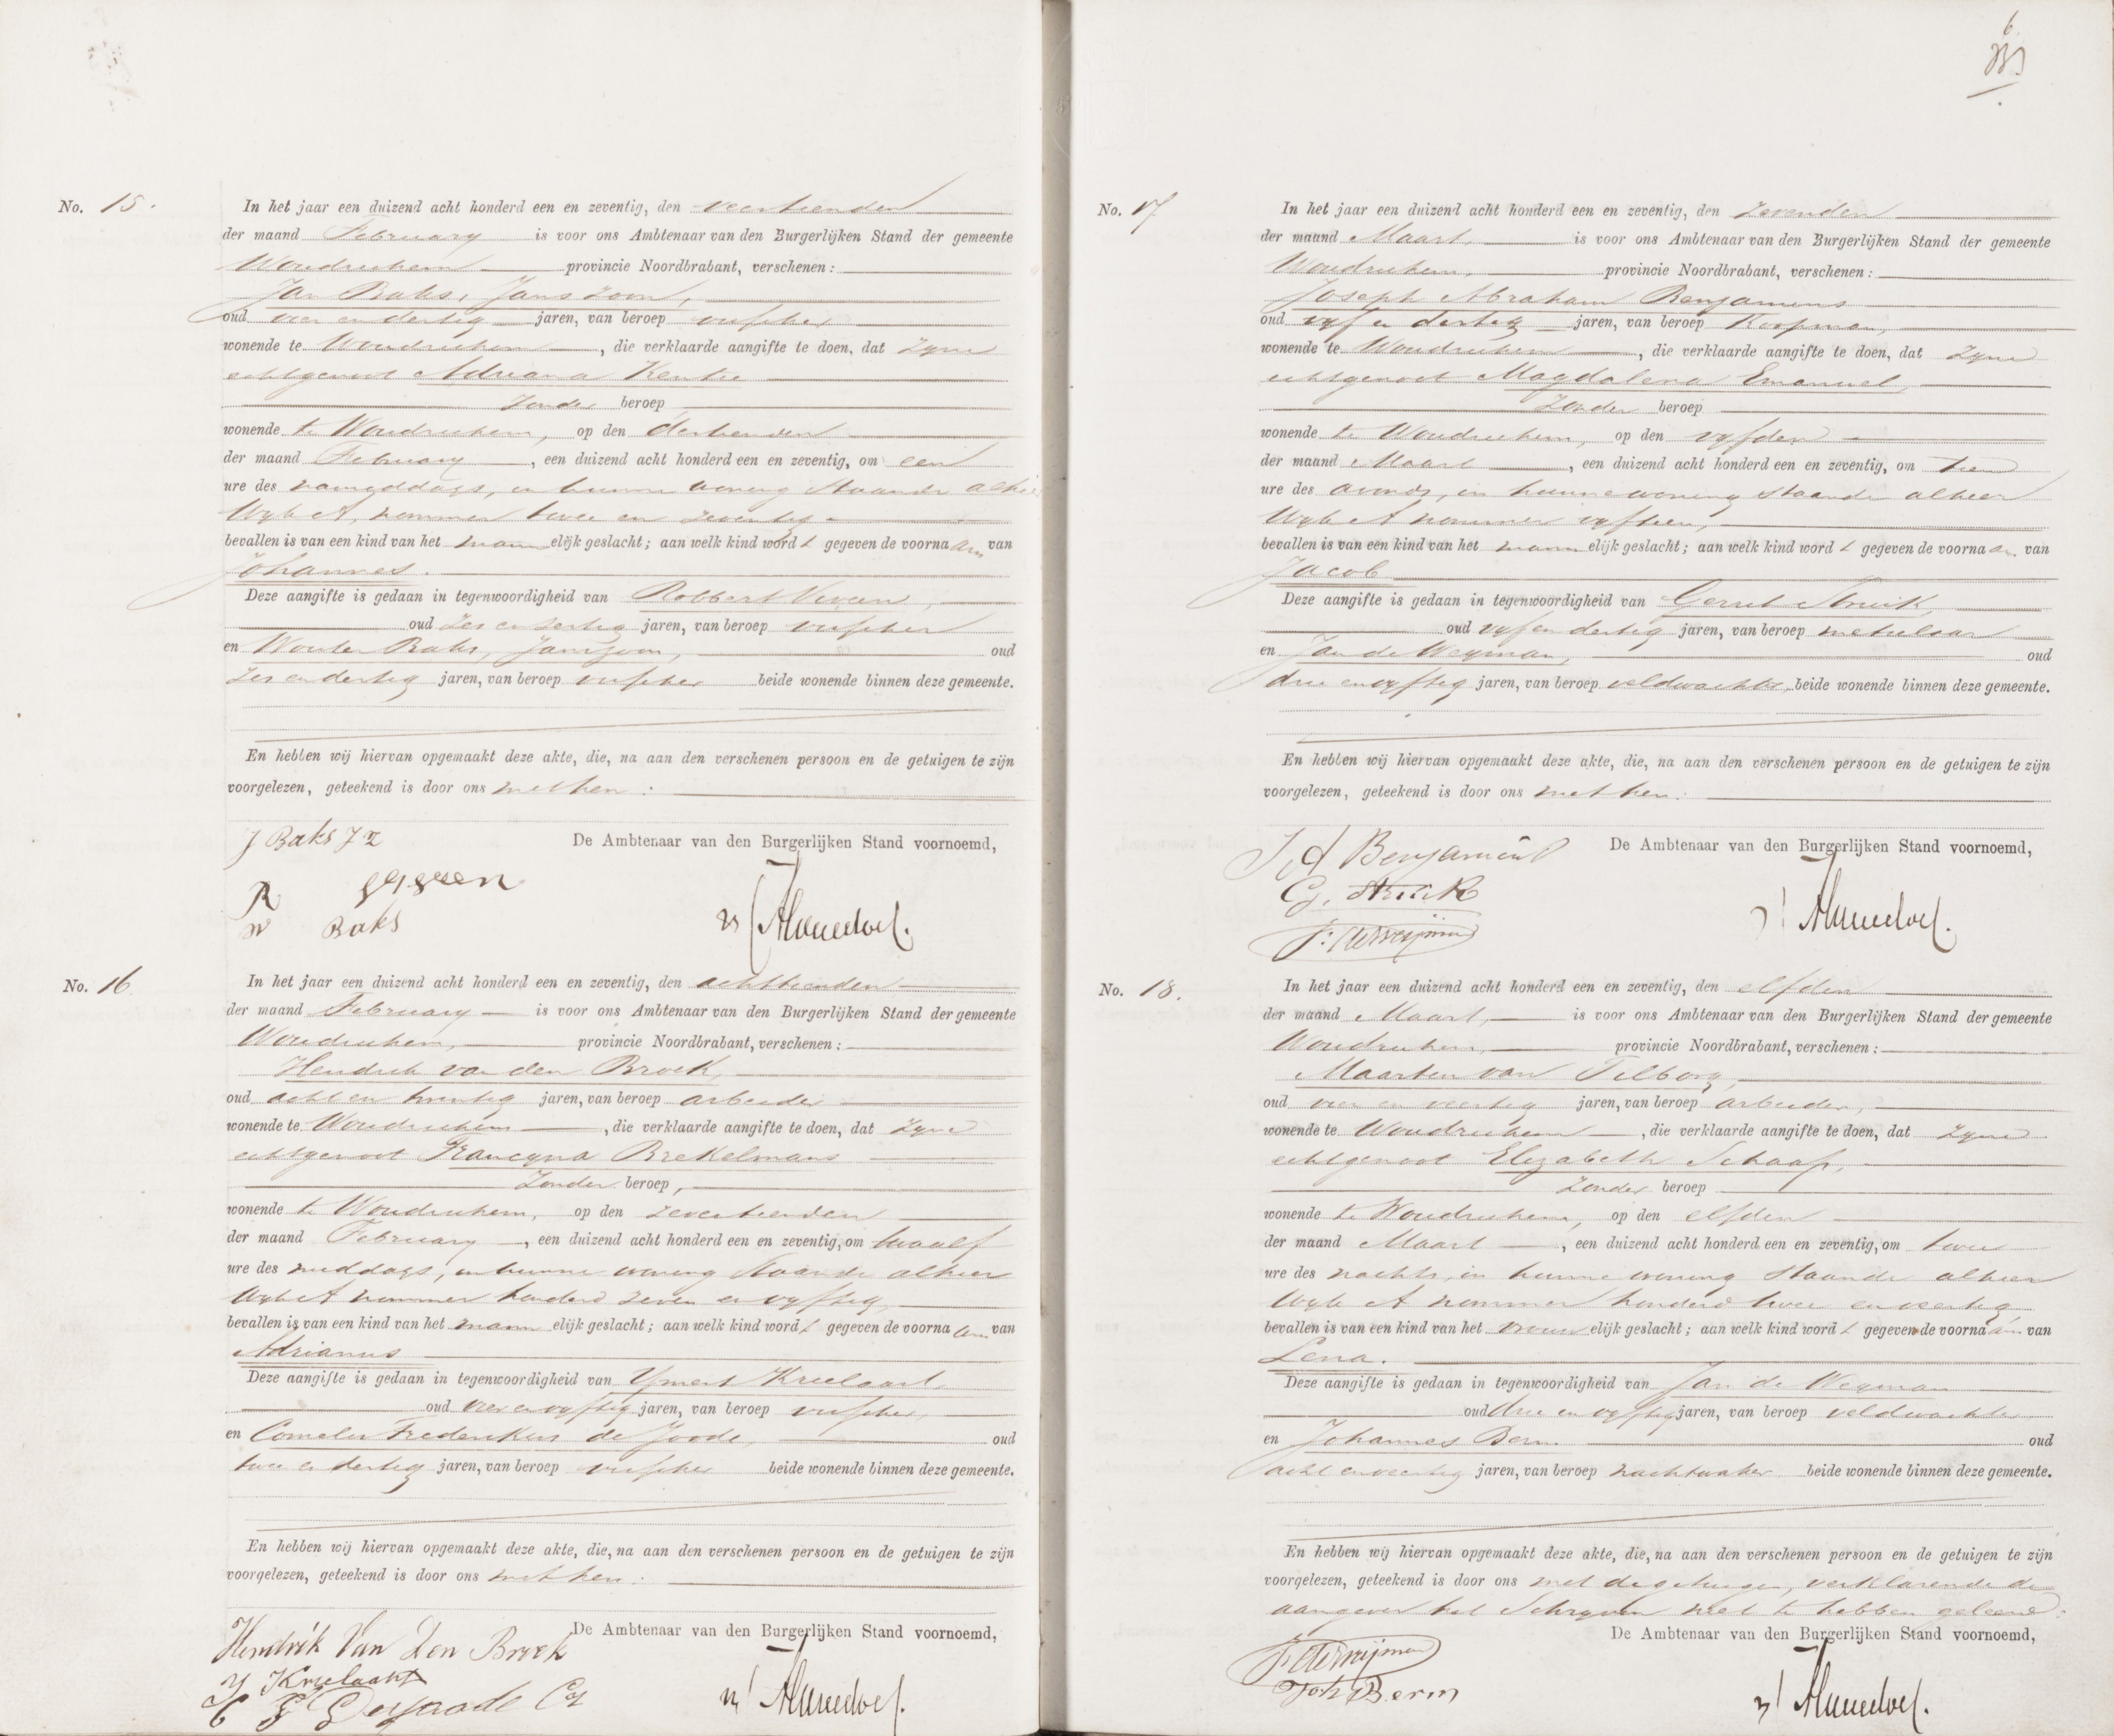 No. 15.
In het jaar een duizend acht honderd een en zeventig, den veertienden
der maand February is voor ons Ambtenaar van den Burgerlijken Stand der gemeente
Woudrichem provincie Noordbrabant, verschenen:
Jan Baks, Janszoon,
oud vier en dertig jaren, van beroep visscher
wonende te Woudrichem, die verklaarde aangifte te doen, dat zyne
echtgenoot Adriana Kentie
zonder beroep
wonende te Woudrichem, op den dertienden
der maand February, een duizend acht honderd een en zeventig, om een
ure des namiddags, in hunne woning staande alhier
Wyk A, nommer twee en zeventig
bevallen is van een kind van het mannelijk geslacht; aan welk kind wordt gegeven de voornaam van
Johannes.
Deze aangifte is gedaan in tegenwoordigheid van Robbert
oud zes en dertig jaren, van beroep visscher
en Wouter Baks, Janszoon, oud
zes en dertig jaren, van beroep visscher beide wonende binnen deze gemeente.
En hebben wij hiervan opgemaakt deze akte, die, na aan den verschenen persoon en de getuigen te zijn
voorgelezen, geteekend is door ons met hen:
De Ambtenaar van den Burgerlijken Stand voornoemd,
J Baks J z
R
W Baks
No. 16
In het jaar een duizend acht honderd een en zeventig, den achttienden
der maand February is voor ons Ambtenaar van den Burgerlijken Stand der gemeente
Woudrichem, provincie Noordbrabant, verschenen:
Hendrik van den Broek,
oud acht en twintig jaren, van beroep arbeider
wonende te Woudrichem, die verklaarde aangifte te doen, dat zyne
echtgenoot Francyna Brekelmans
zonder beroep,
wonende te Woudrichem, op den zeventienden
der maand February, een duizend acht honderd een en zeventig, om twaalf
ure des middags, in hunne woning staande alhier
Wyk A nommer honderd zeven en vyftig,
bevallen is van een kind van het mannelijk geslacht; aan welk kind wordt gegeven de voornaam van
Adrianus
Deze aangifte is gedaan in tegenwoordigheid van Ymert Kreelaart
oud vier en vyftig jaren, van beroep visscher,
en Cornelis Frederikus de Joode, oud
twee en dertig jaren, van beroep visscher beide wonende binnen deze gemeente.
En hebben wij hiervan opgemaakt deze akte, die, na aan den verschenen persoon en de getuigen te zijn
voorgelezen, geteekend is door ons met hen:
De Ambtenaar van den Burgerlijken Stand voornoemd,
Hendrik Van Den Broek
Y Kreelaart
6
No. 17
In het jaar een duizend acht honderd een en zeventig, den zevenden
der maand Maart, is voor ons Ambtenaar van den Burgerlijken Stand der gemeente
Woudrichem, provincie Noordbrabant, verschenen:
Joseph Abraham Benjamens
oud vyf en dertig jaren, van beroep Koopman,
wonende te Woudrichem, die verklaarde aangifte te doen, dat zyne
echtgenoot Magdalena Emanuel,
zonder beroep
wonende te Woudrichem, op den vyfden
der maand Maart, een duizend acht honderd een en zeventig, om tien
ure des avonds, in hunne woning staande alhier
Wyk A nommer vyftien,
bevallen is van een kind van het mannelijk geslacht; aan welk kind wordt gegeven de voornaam van
Jacob
Deze aangifte is gedaan in tegenwoordigheid van Gerrit Struik,
oud vyf en dertig jaren, van beroep metselaar
en Jan de Weyman, oud
drie en vyftig jaren, van beroep veldwachter, beide wonende binnen deze gemeente.
En hebben wij hiervan opgemaakt deze akte, die, na aan den verschenen persoon en de getuigen te zijn
voorgelezen, geteekend is door ons met hen:
De Ambtenaar van den Burgerlijken Stand voornoemd,
J A Benjamens
G. Struik
No. 18.
In het jaar een duizend acht honderd een en zeventig, den elfden
der maand Maart, is voor ons Ambtenaar van den Burgerlijken Stand der gemeente
Woudrichem, provincie Noordbrabant, verschenen:
Maarten van Tilborg,
oud vier en veertig jaren, van beroep arbeider,
wonende te Woudrichem, die verklaarde aangifte te doen, dat zyne
echtgenoot Elizabeth Schaap,
zonder beroep
wonende te Woudrichem, op den elfden
der maand Maart, een duizend acht honderd een en zeventig, om twee
ure des nachts, in hunne woning staande alhier
Wyk A nommer honderd twee en veertig
bevallen is van een kind van het vrouwelijk geslacht; aan welk kind wordt gegeven de voornaam van
Lena.
Deze aangifte is gedaan in tegenwoordigheid van Jan de Weyman
oud drie en vyftig jaren, van beroep veldwachter
en Johannes Berm oud
acht en veertig jaren, van beroep nachtwaker beide wonende binnen deze gemeente.
En hebben wij hiervan opgemaakt deze akte, die, na aan den verschenen persoon en de getuigen te zijn
voorgelezen, geteekend is door ons met de getuigen, verklarende de
aangever het schryven niet te hebben geleerd.
De Ambtenaar van den Burgerlijken Stand voornoemd,
Joh Berm